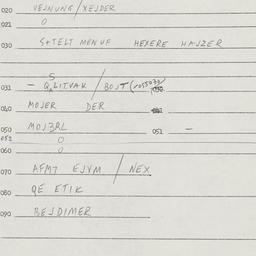 020 VEJNUNG/XEJDER
021 0
030 S+TELT MENUF HEXERE HAJZER
031 – QRLITVAK / BOJT(
040 MOJER DER
050 MOJBRL 051 –
052 0
060 0
070 AFM7 EJVM / NEX
080 QE ETIK
090 BEJDIMER